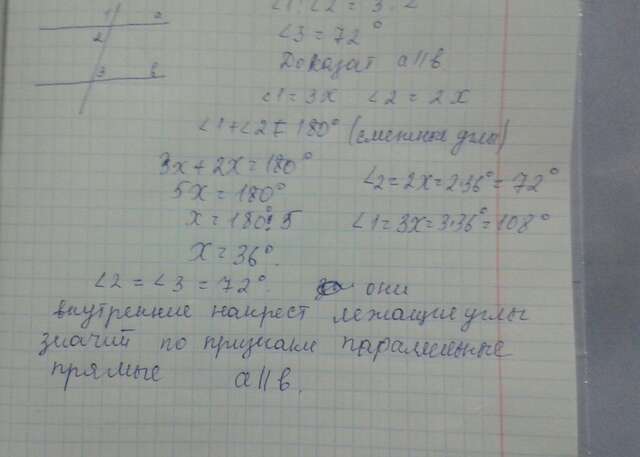 ∠1:∠2 = 3:2
1 a
2
3 b
∠3 = 72°
Доказат a||b
∠1 = 3x ∠2 = 2x
∠1+∠2 = 180° (смежные углы)
3x + 2x = 180°
5x = 180°
x = 180°:5
x = 36°.
∠2 = 2x = 2·36° = 72°
∠1 = 3x = 3·36° = 108°
∠2 = ∠3 = 72°. они
внутренние накрест лежащие углы
значий по признакам параллельные
прямые a||b.